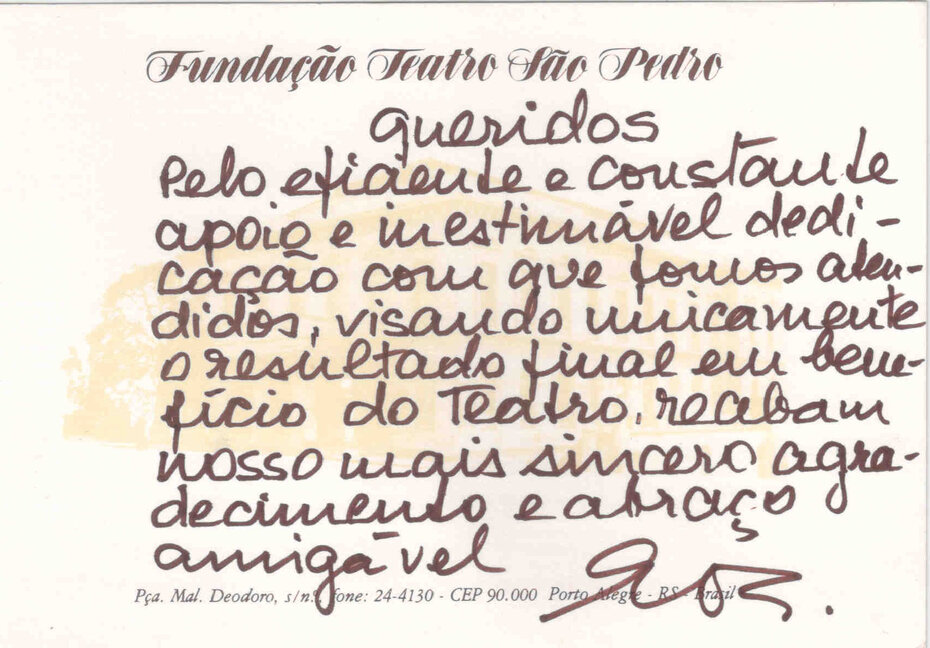 Fundação Teatro São Pedro
queridos
Pelo eficiente e constante
apoio e inestimável dedi-
cação com que fomos aten-
didos, visando unicamente
o resultado final em bene-
fício do Teatro, recebam
nosso mais sincero agra-
decimento e abraço
amigável
Pça. Mal. Deodoro, s/nº, fone: 24-4130 - CEP 90.000 Porto Alegre - RS - Brasil